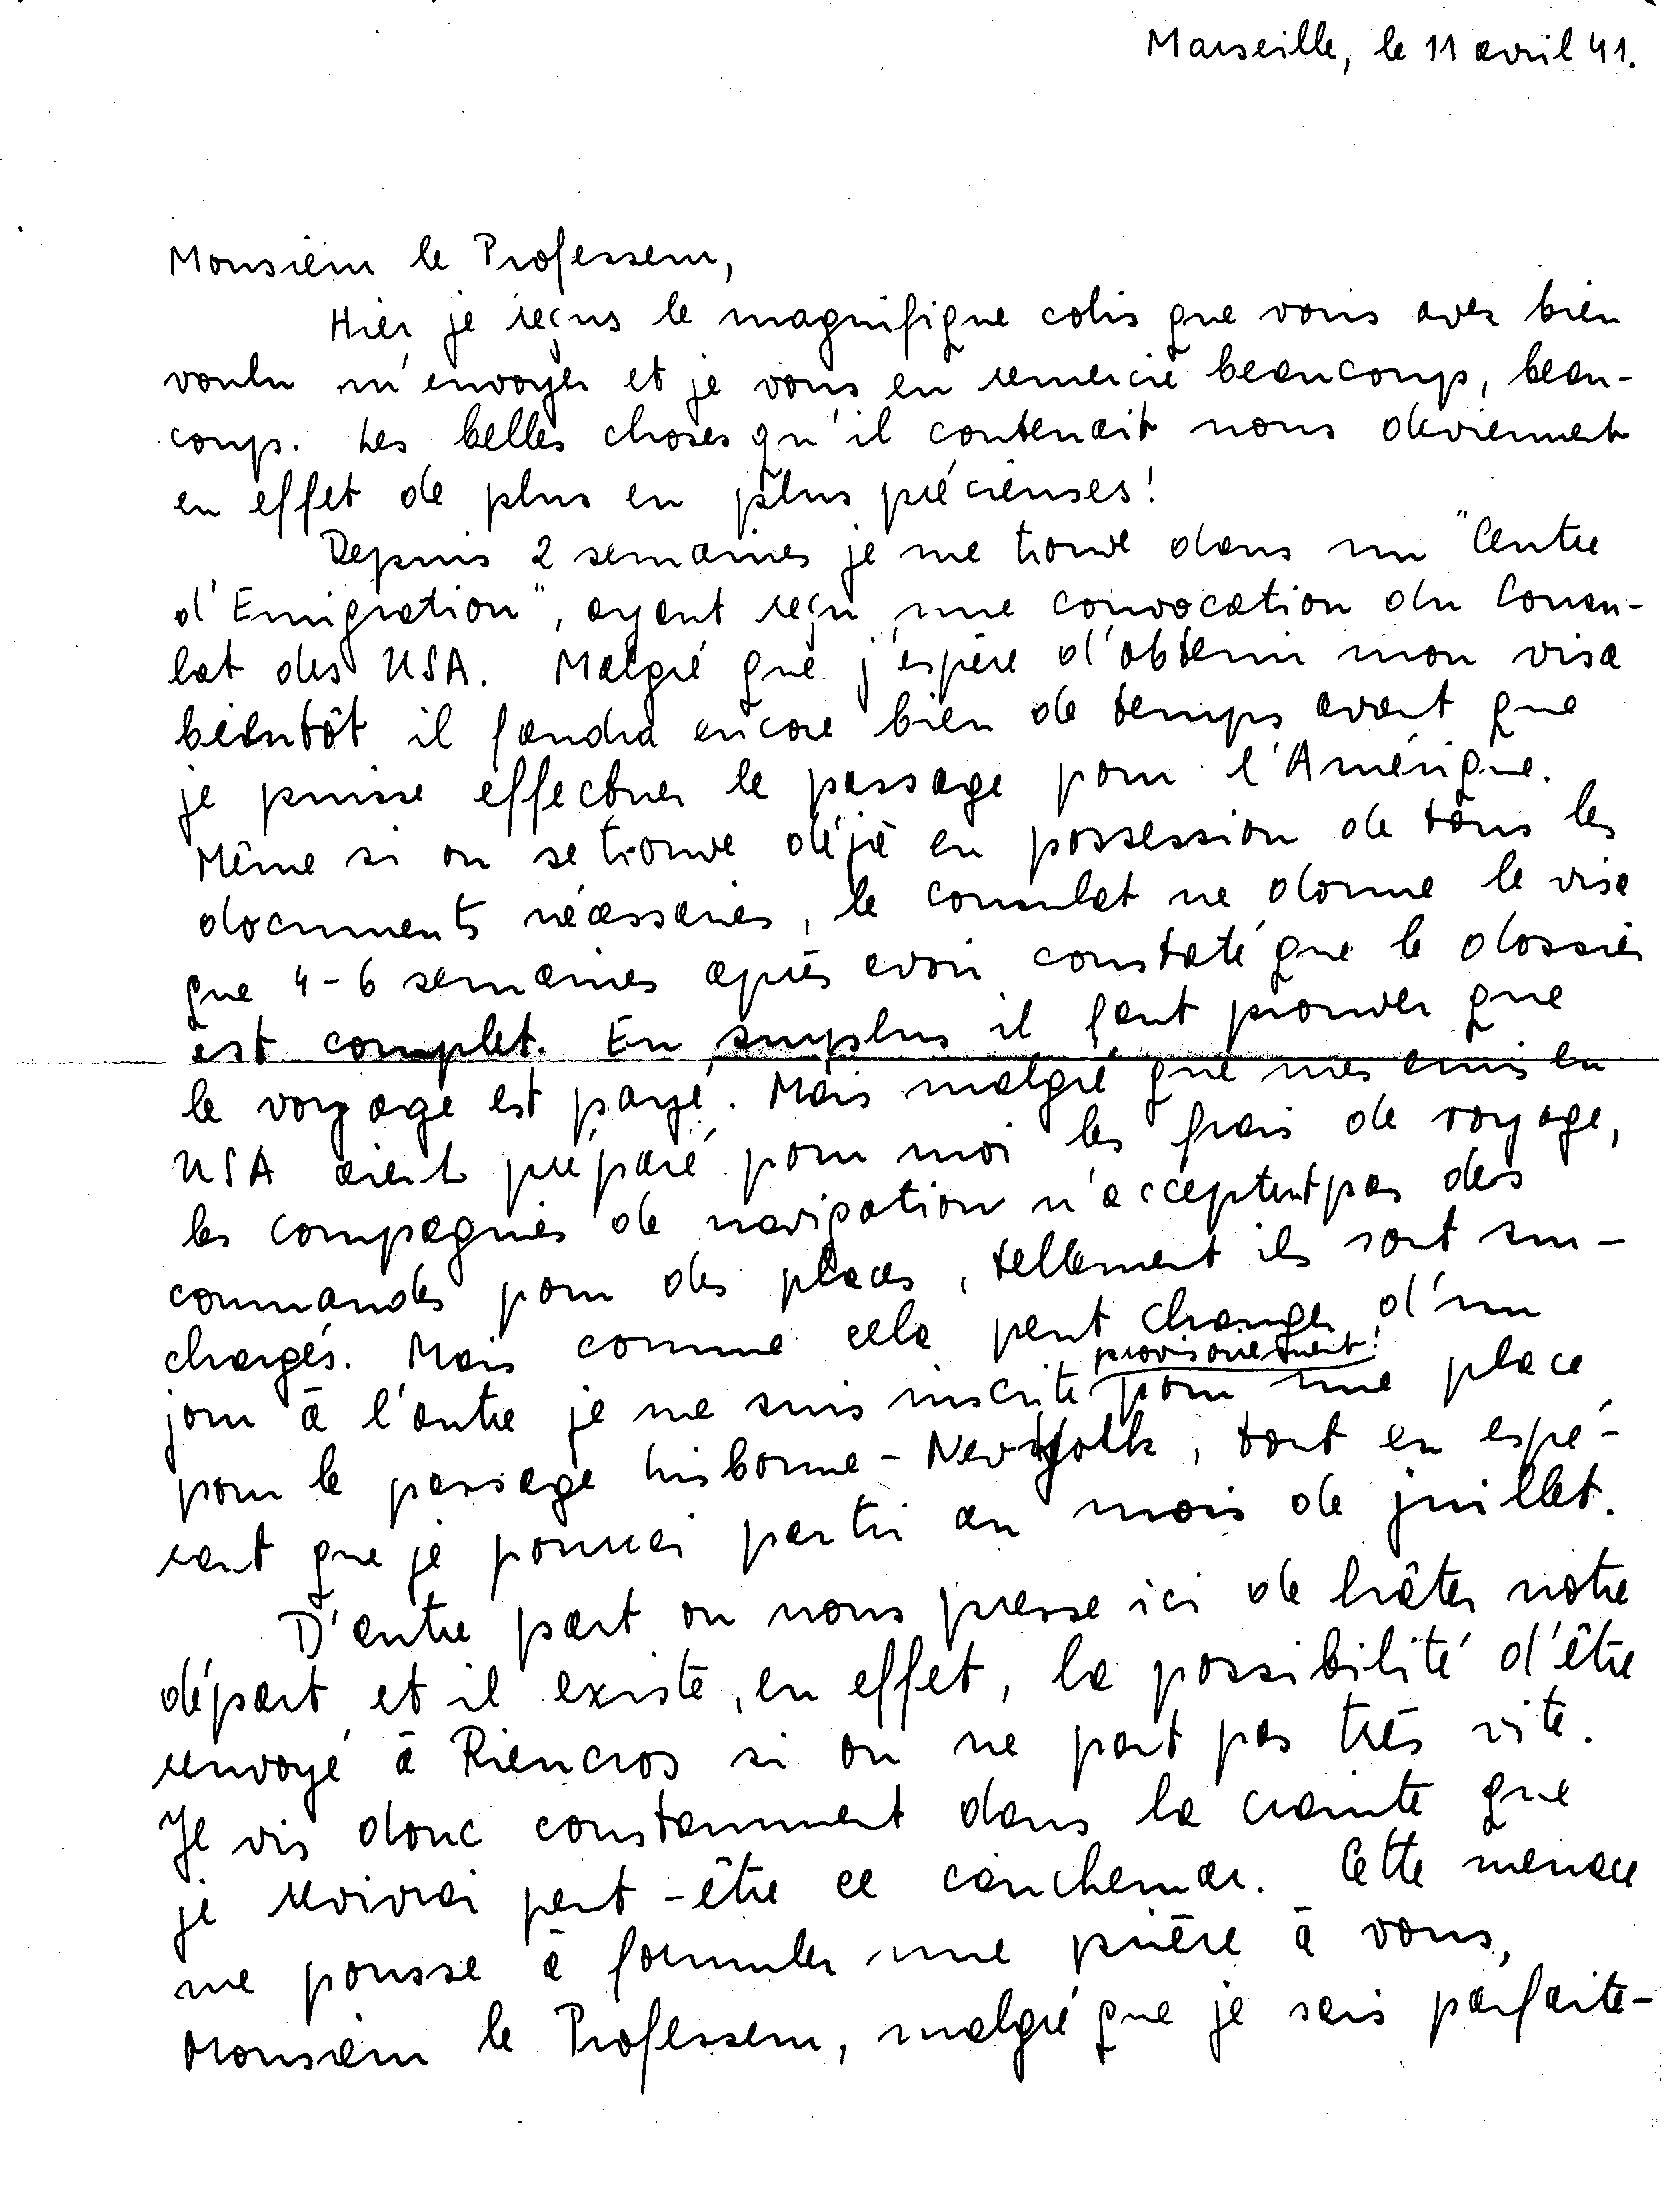 Marseille, le 11 avril 41.
Monsieur le Professeur,
Hier je reçus le magnifique colis que vous avez bien
voulu m'envoyer et je vous en remercie beaucoup, beau-
coup. Les belles choses qu'il contenait nous deviennent
en effet de plus en plus précieuses!
Depuis 2 semaines je me trouve dans un "Centre
d'Emigration", ayant reçu une convocation du Consu-
lat des USA. Malgré que j'espère d'obtenir mon visa
bientôt il faudra encore bien de temps avant que
je puisse effectuer le passage pour l'Amérique.
Même si on se trouve déjà en possession de tous les
documents nécessaires, le consulat ne donne le visa
que 4-6 semaines après avoir constaté que le dossier
est complet. En surplus il faut prouver que
le voyage est payé. Mais malgré que mes amis en
USA aient préparé pour moi les frais de voyage,
les compagnies de navigation n'acceptent pas des
commandes pour des places, tellement ils sont sur-
chargés. Mais comme cela peut changer d'un
provisoirement!
jour à l'autre je me suis inscrite pour une place
pour le passage Lisbonne - New York, tout en espé-
rant que je pourrai partir au mois de juillet.
D'autre part on nous presse ici de hâter notre
départ et il existe, en effet, la possibilité d'être
renvoyé à Rieucros si on ne part pas très vite.
Je vis donc constamment dans la crainte que
je revivrai peut-être ce cauchemar. Cette menace
me pousse à formuler une prière à vous,
Monsieur le Professeur, malgré que je sais parfaite-